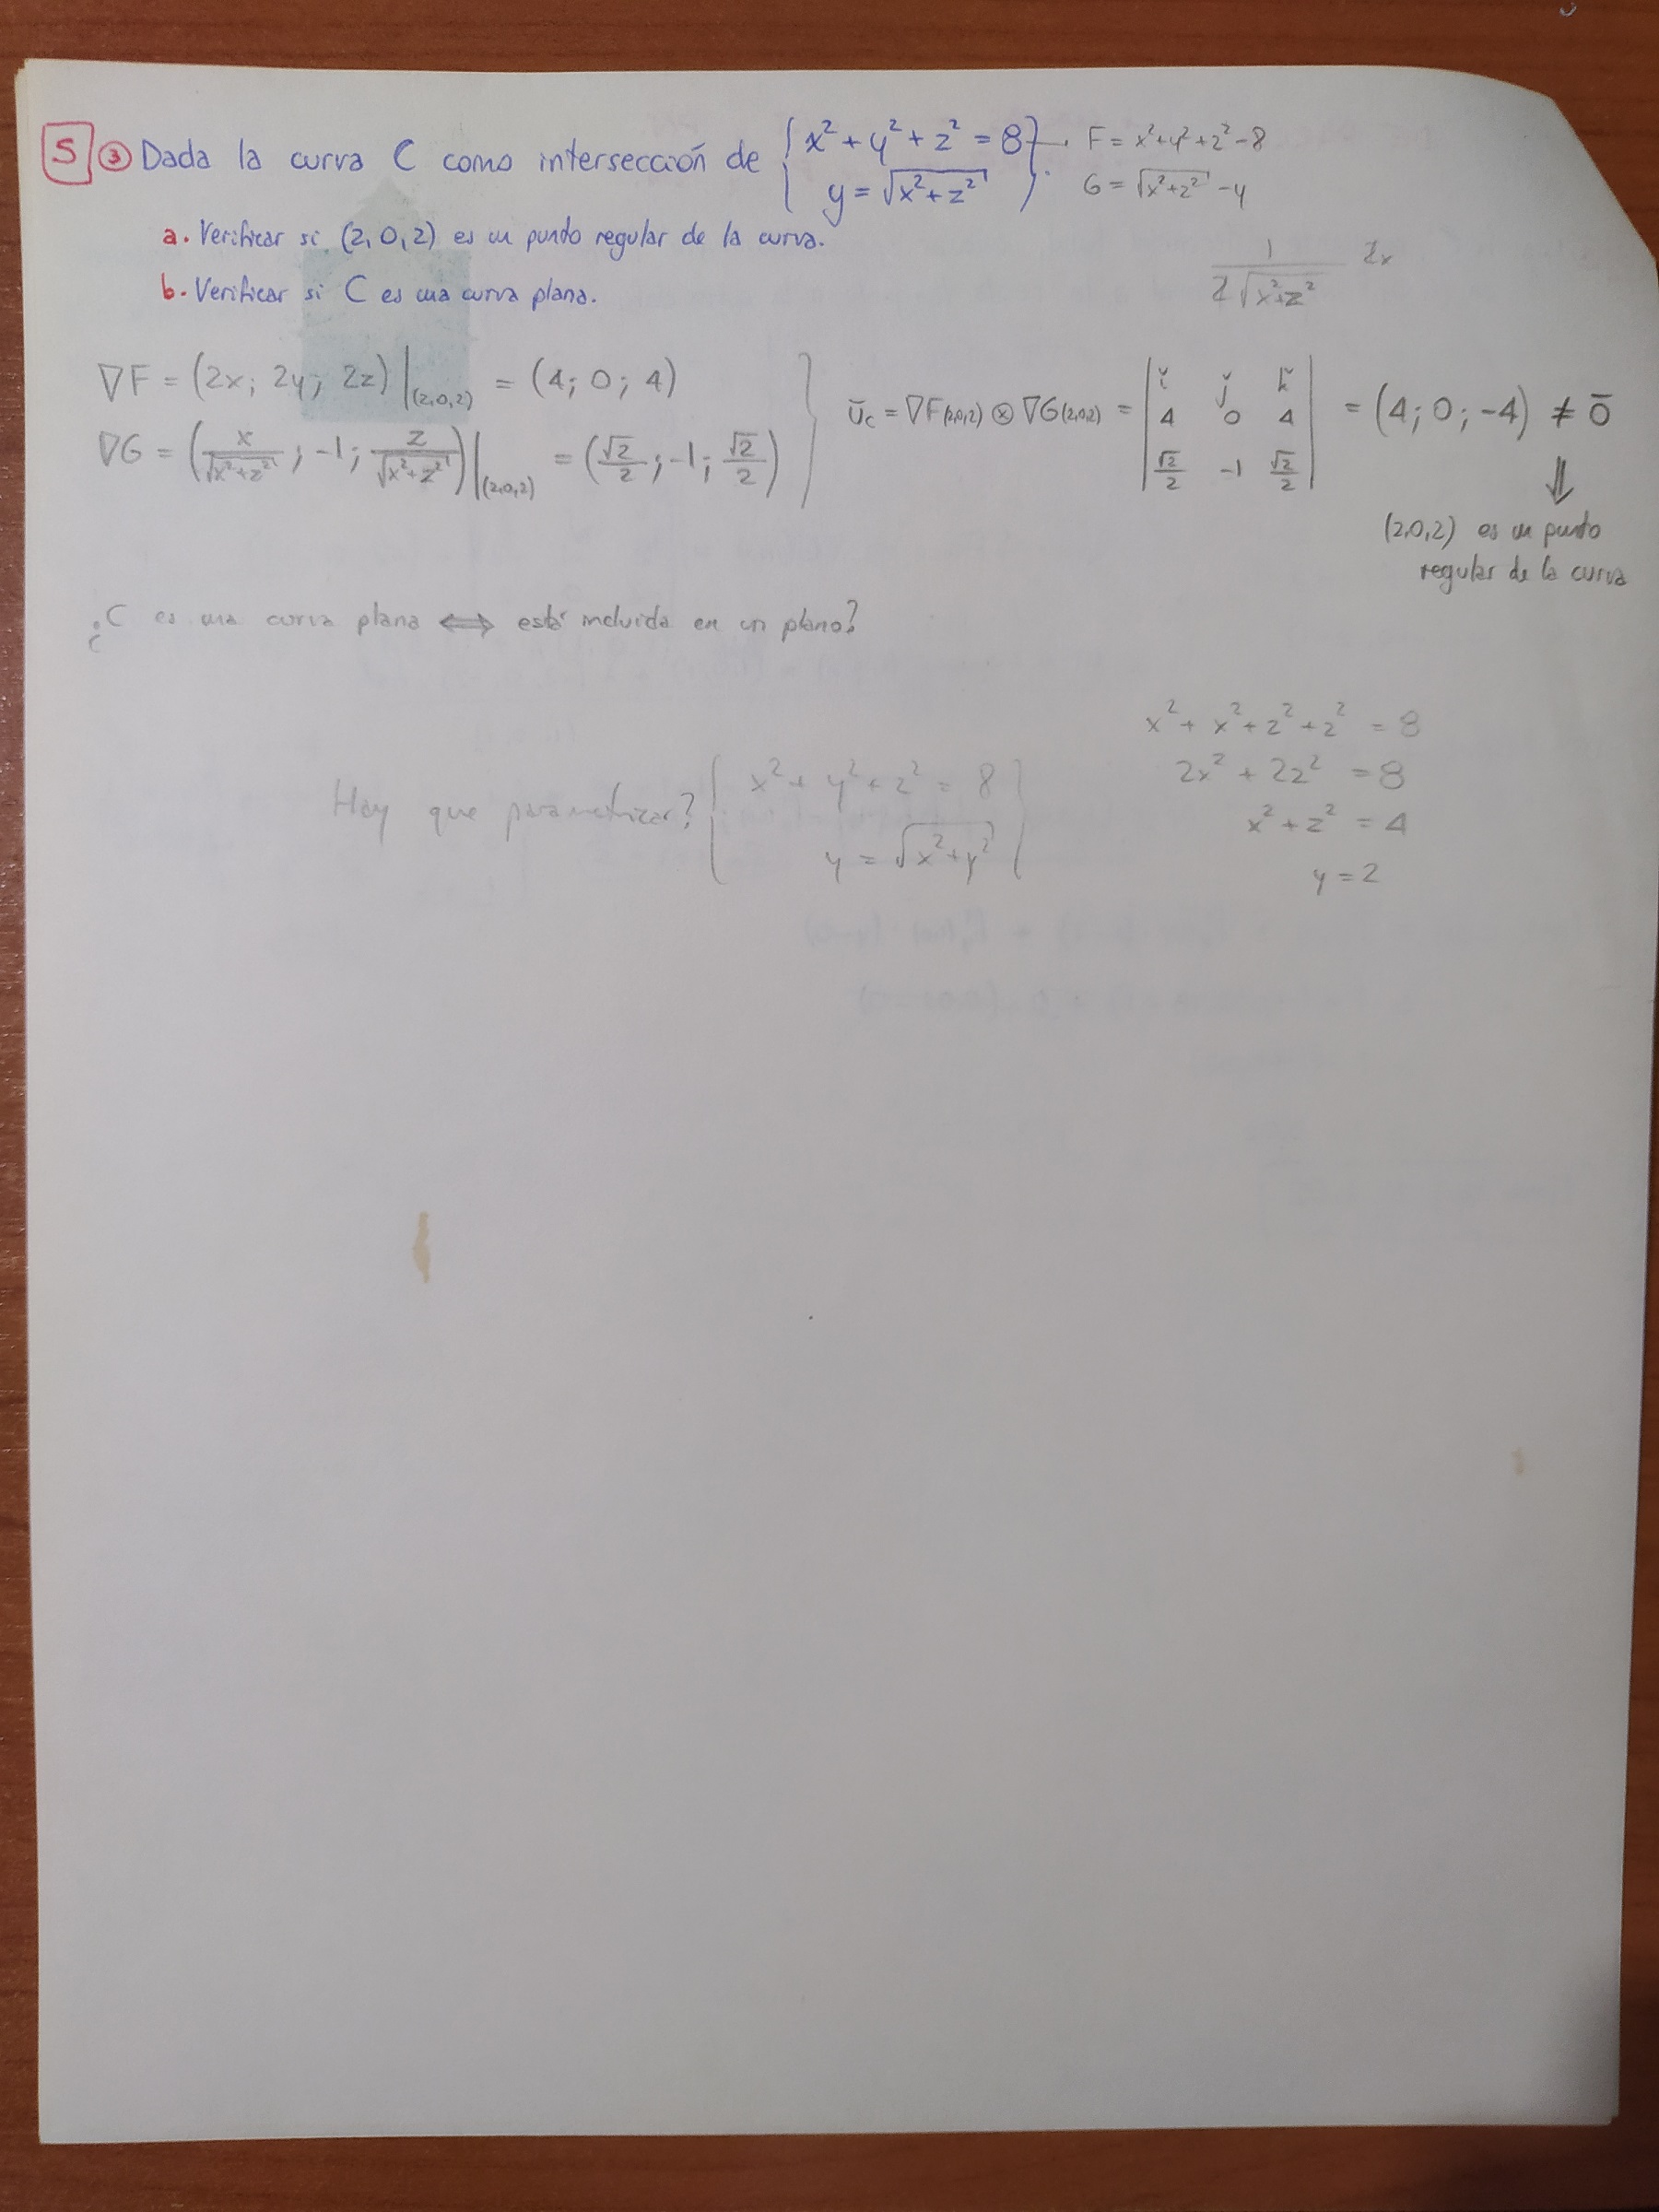 5 ③ Dada la curva C como intersección de { x² + y² + z² = 8 } → F = x²+y²+z²-8
y = √(x²+z²) G = √(x²+z²) - y
a. Verificar si (2,0,2) es un punto regular de la curva.
b. Verificar si C es una curva plana.
1/(2√(x²+z²)) 2x
∇F = (2x; 2y; 2z)|(2,0,2) = (4; 0; 4)
∇G = (x/√(x²+z²); -1; z/√(x²+z²))|(2,0,2) = (√2/2; -1; √2/2)
ūc = ∇F(2,0,2) ⊗ ∇G(2,0,2) = | ǐ ǰ ǩ | = (4; 0; -4) ≠ ō
4 0 4
√2/2 -1 √2/2
⇓
(2,0,2) es un punto
regular de la curva
¿C es una curva plana ⟺ está incluida en un plano?
Hay que parametrizar? { x² + y² + z² = 8 }
y = √(x²+y²)
x² + x² + z² + z² = 8
2x² + 2z² = 8
x² + z² = 4
y = 2